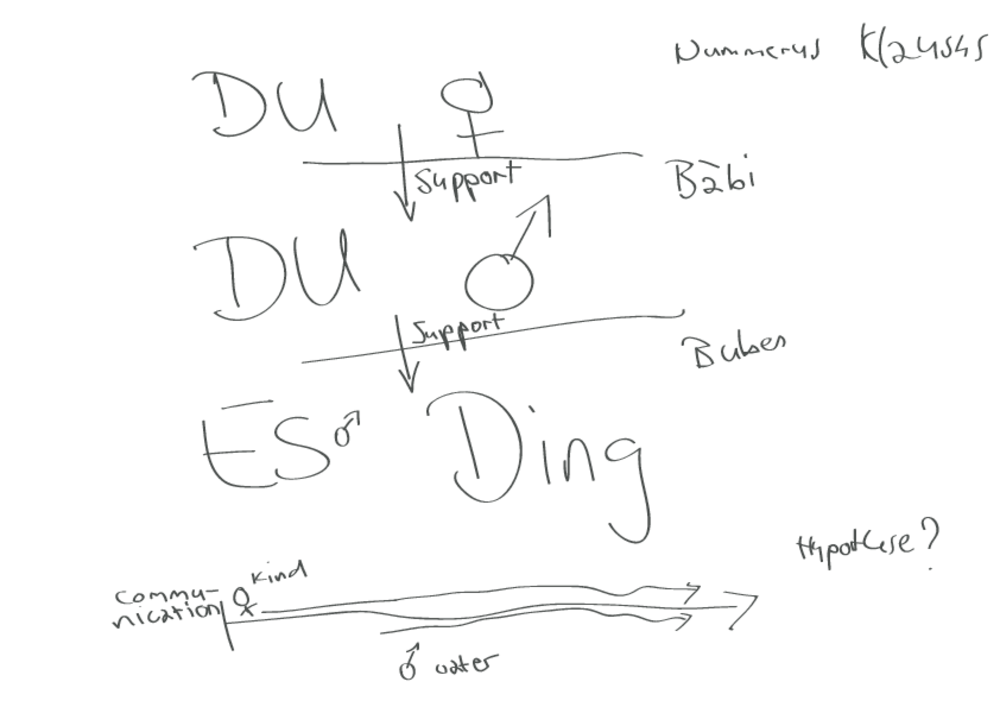 Nummerus Klausus
DU
Support
Bäbi
DU
Support
Bubes
ES Ding
Hypothese?
Kind
Commu-
nication
vater